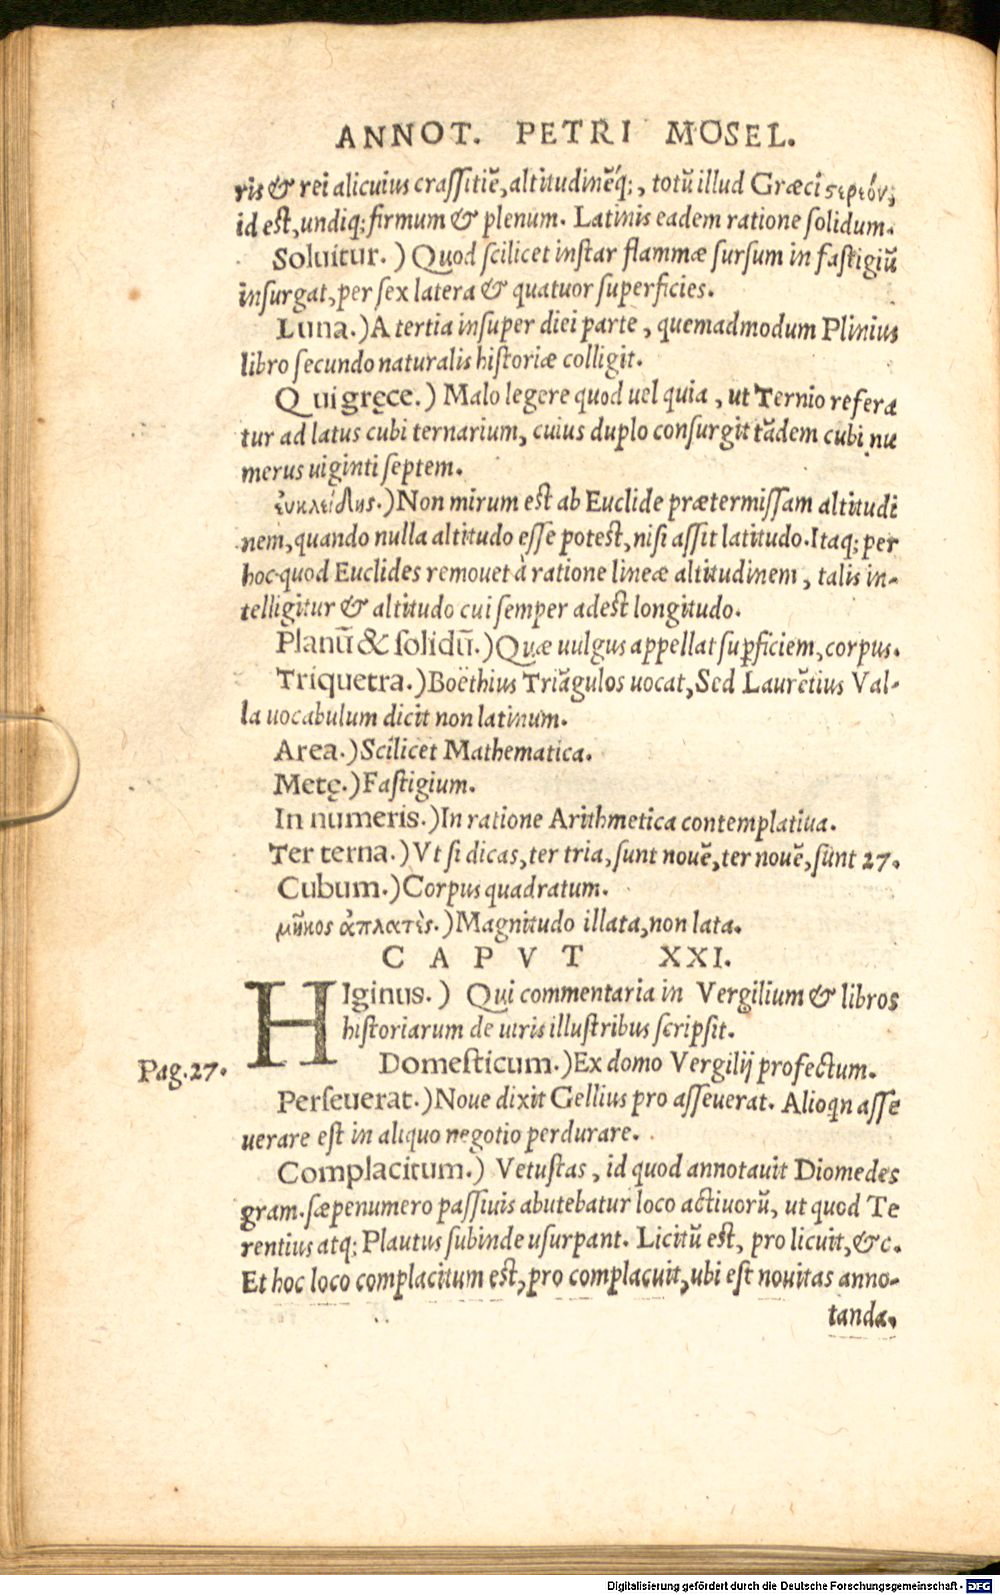 ANNOT. PETRI MOSEL.
ris & rei alicuius crassitiē, altitudinēq;, totū illud Græci στερεόν,
id est, undiq; firmum & plenum. Latinis eadem ratione solidum.
Soluitur.) Quod scilicet instar flammæ sursum in fastigiū
insurgat, per sex latera & quatuor superficies.
Luna.) A tertia insuper diei parte, quemadmodum Plinius
libro secundo naturalis historiæ colligit.
Qui gręce.) Malo legere quod uel quia, ut Ternio refera
tur ad latus cubi ternarium, cuius duplo consurgit tādem cubi nu
merus uiginti septem.
ἐυκλείδης.) Non mirum est ab Euclide prætermissam altitudi
nem, quando nulla altitudo esse potest, nisi assit latitudo. Itaq; per
hoc quod Euclides remouet à ratione lineæ altitudinem, talis in-
telligitur & altitudo cui semper adest longitudo.
Planū & solidū.) Quæ uulgus appellat suꝑficiem, corpus.
Triquetra.) Boëthius Triāgulos uocat, Sed Laurētius Val-
la uocabulum dicit non latinum.
Area.) Scilicet Mathematica.
Metę.) Fastigium.
In numeris.) In ratione Arithmetica contemplatiua.
Ter terna.) Vt si dicas, ter tria, sunt nouē, ter nouē, sunt 27.
Cubum.) Corpus quadratum.
μῆκος ἀπλατὲς.) Magnitudo illata, non lata.
CAPVT XXI.
HIginus.) Qui commentaria in Vergilium & libros
historiarum de uiris illustribus scripsit.
Pag.27. Domesticum.) Ex domo Vergilij profectum.
Perseuerat.) Noue dixit Gellius pro asseuerat. Alioqn asse
uerare est in aliquo negotio perdurare.
Complacitum.) Vetustas, id quod annotauit Diomedes
gram. sæpenumero passiuis abutebatur loco actiuorū, ut quod Te
rentius atq; Plautus subinde usurpant. Licitū est, pro licuit, &c.
Et hoc loco complacitum est, pro complacuit, ubi est nouitas anno-
tanda.
Digitalisierung gefördert durch die Deutsche Forschungsgemeinschaft - DFG